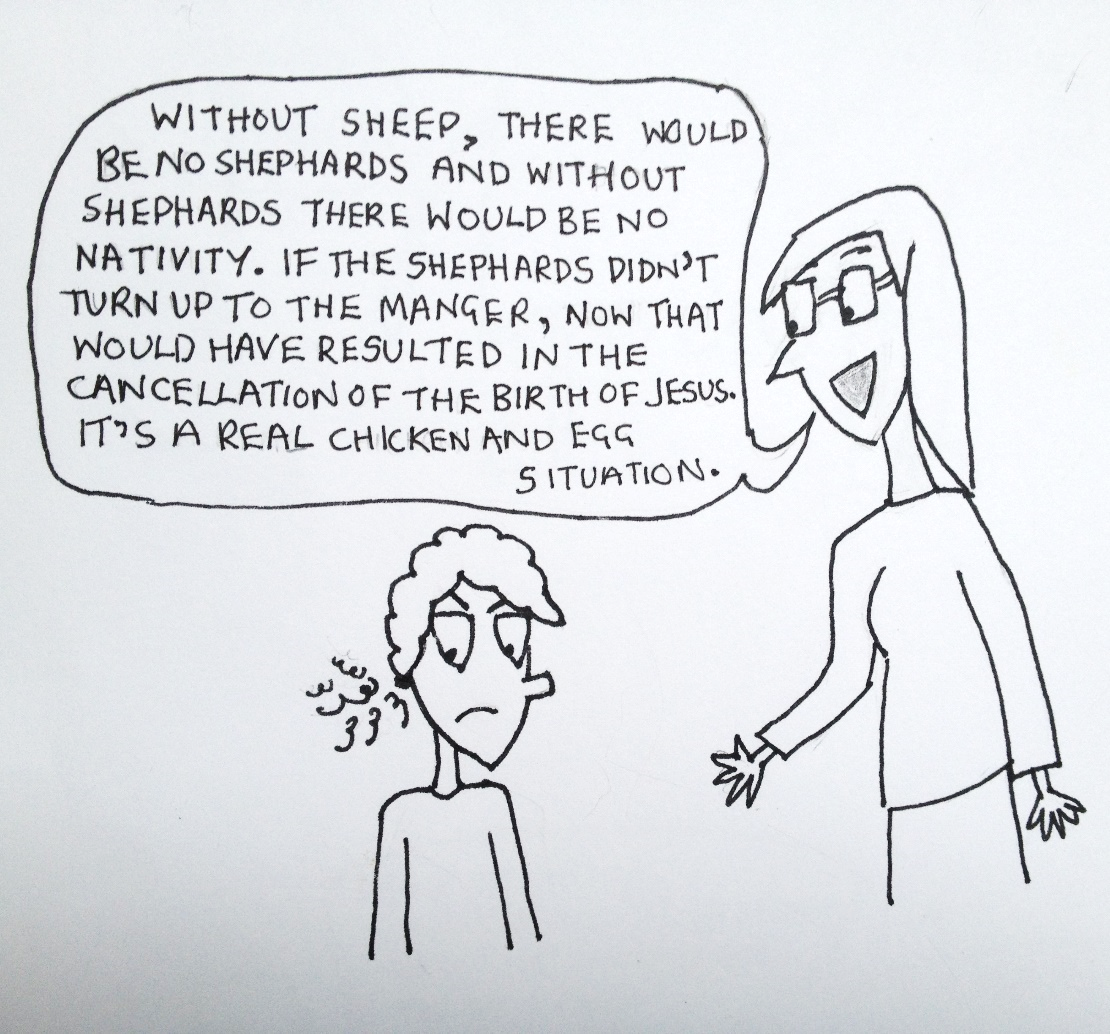 WITHOUT SHEEP, THERE WOULD
BE NO SHEPHARDS AND WITHOUT
SHEPHARDS THERE WOULD BE NO
NATIVITY. IF THE SHEPHARDS DIDN'T
TURN UP TO THE MANGER, NOW THAT
WOULD HAVE RESULTED IN THE
CANCELLATION OF THE BIRTH OF JESUS.
IT'S A REAL CHICKEN AND EGG
SITUATION.